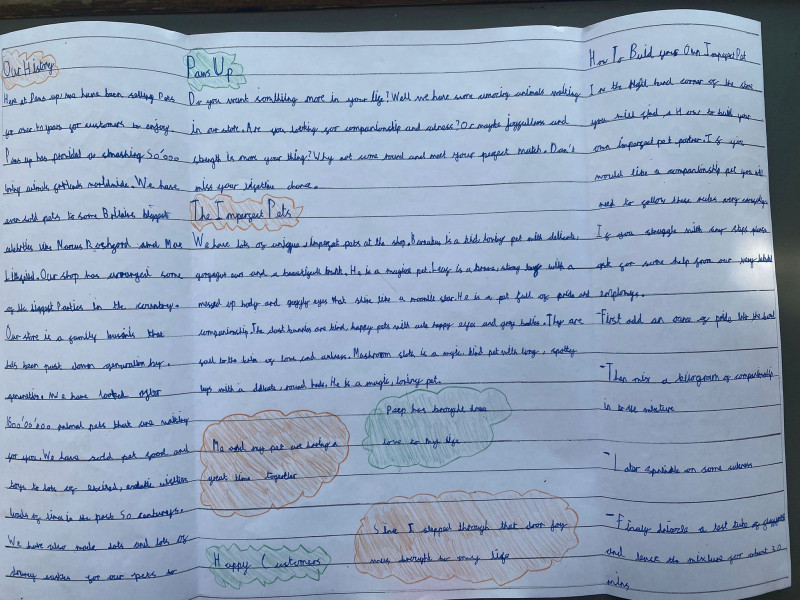 Our History
Here at Paws up we have been selling Pets
for over 40 years for customers to enjoy
Paws up has provided a smashing 50'000
loving animals worldwide. We have
even sold pets to some Britains biggest
celebrities like Marcus Rashgord and Mac
Our shop has arranged some
of the biggest Parties in the country.
Our store is a family that
has been past down generation by
generation. We have looked after
animal pets that are waiting
for you. We have sold pet good and
toys to lots of excited, visitors
loads of times in the past 50 centurys.
We have also made lots and lots of
for our pets to
Paws Up
Do you want something more in your life? Well we have some amazing animals waiting
in our store. Are you looking for companionship and cuteness? Or maybe joyfullness and
strength is more your thing? Why not come round and meet your perfect match. Don't
miss your chance.
The Imperfect Pets
We have lots of unique, imperfect pets at the shop. Barnabus is a kind, loving pet with delicate,
gorgeous ears and a beautiful trunk. He is a magical pet. is a with a
messed up body and googly eyes that shine like a star. He is a pet full of pride and
companionship. The bunnies are kind, happy pets with cute happy eyes and grey bodies. They are
full to the brim of love and cuteness. Mushroom sloth is a magic, kind pet with long, spotty
legs with a delicate, round body. He is a magic, loving pet.
Me and my pet are having a
great time together
has brought
love to my life
Since I stepped through that door joy
was brought to my life
Happy Customers
How To Buid your Own Imperfect Pet
In the Right hand corner of the store
you will find a How to build your
own imperfect pet partner. If you
would like a companionship pet you will
need to follow these rules very carefully.
If you struggle with any steps please
ask for some help from our
employees.
-First add an ounce of pride into the bowl
-Then mix a killogram of companionship
in to the mixture
-Later sprinkle on some cuteness
-Finaly a last tube of
and leave the mixture for about 30
mins